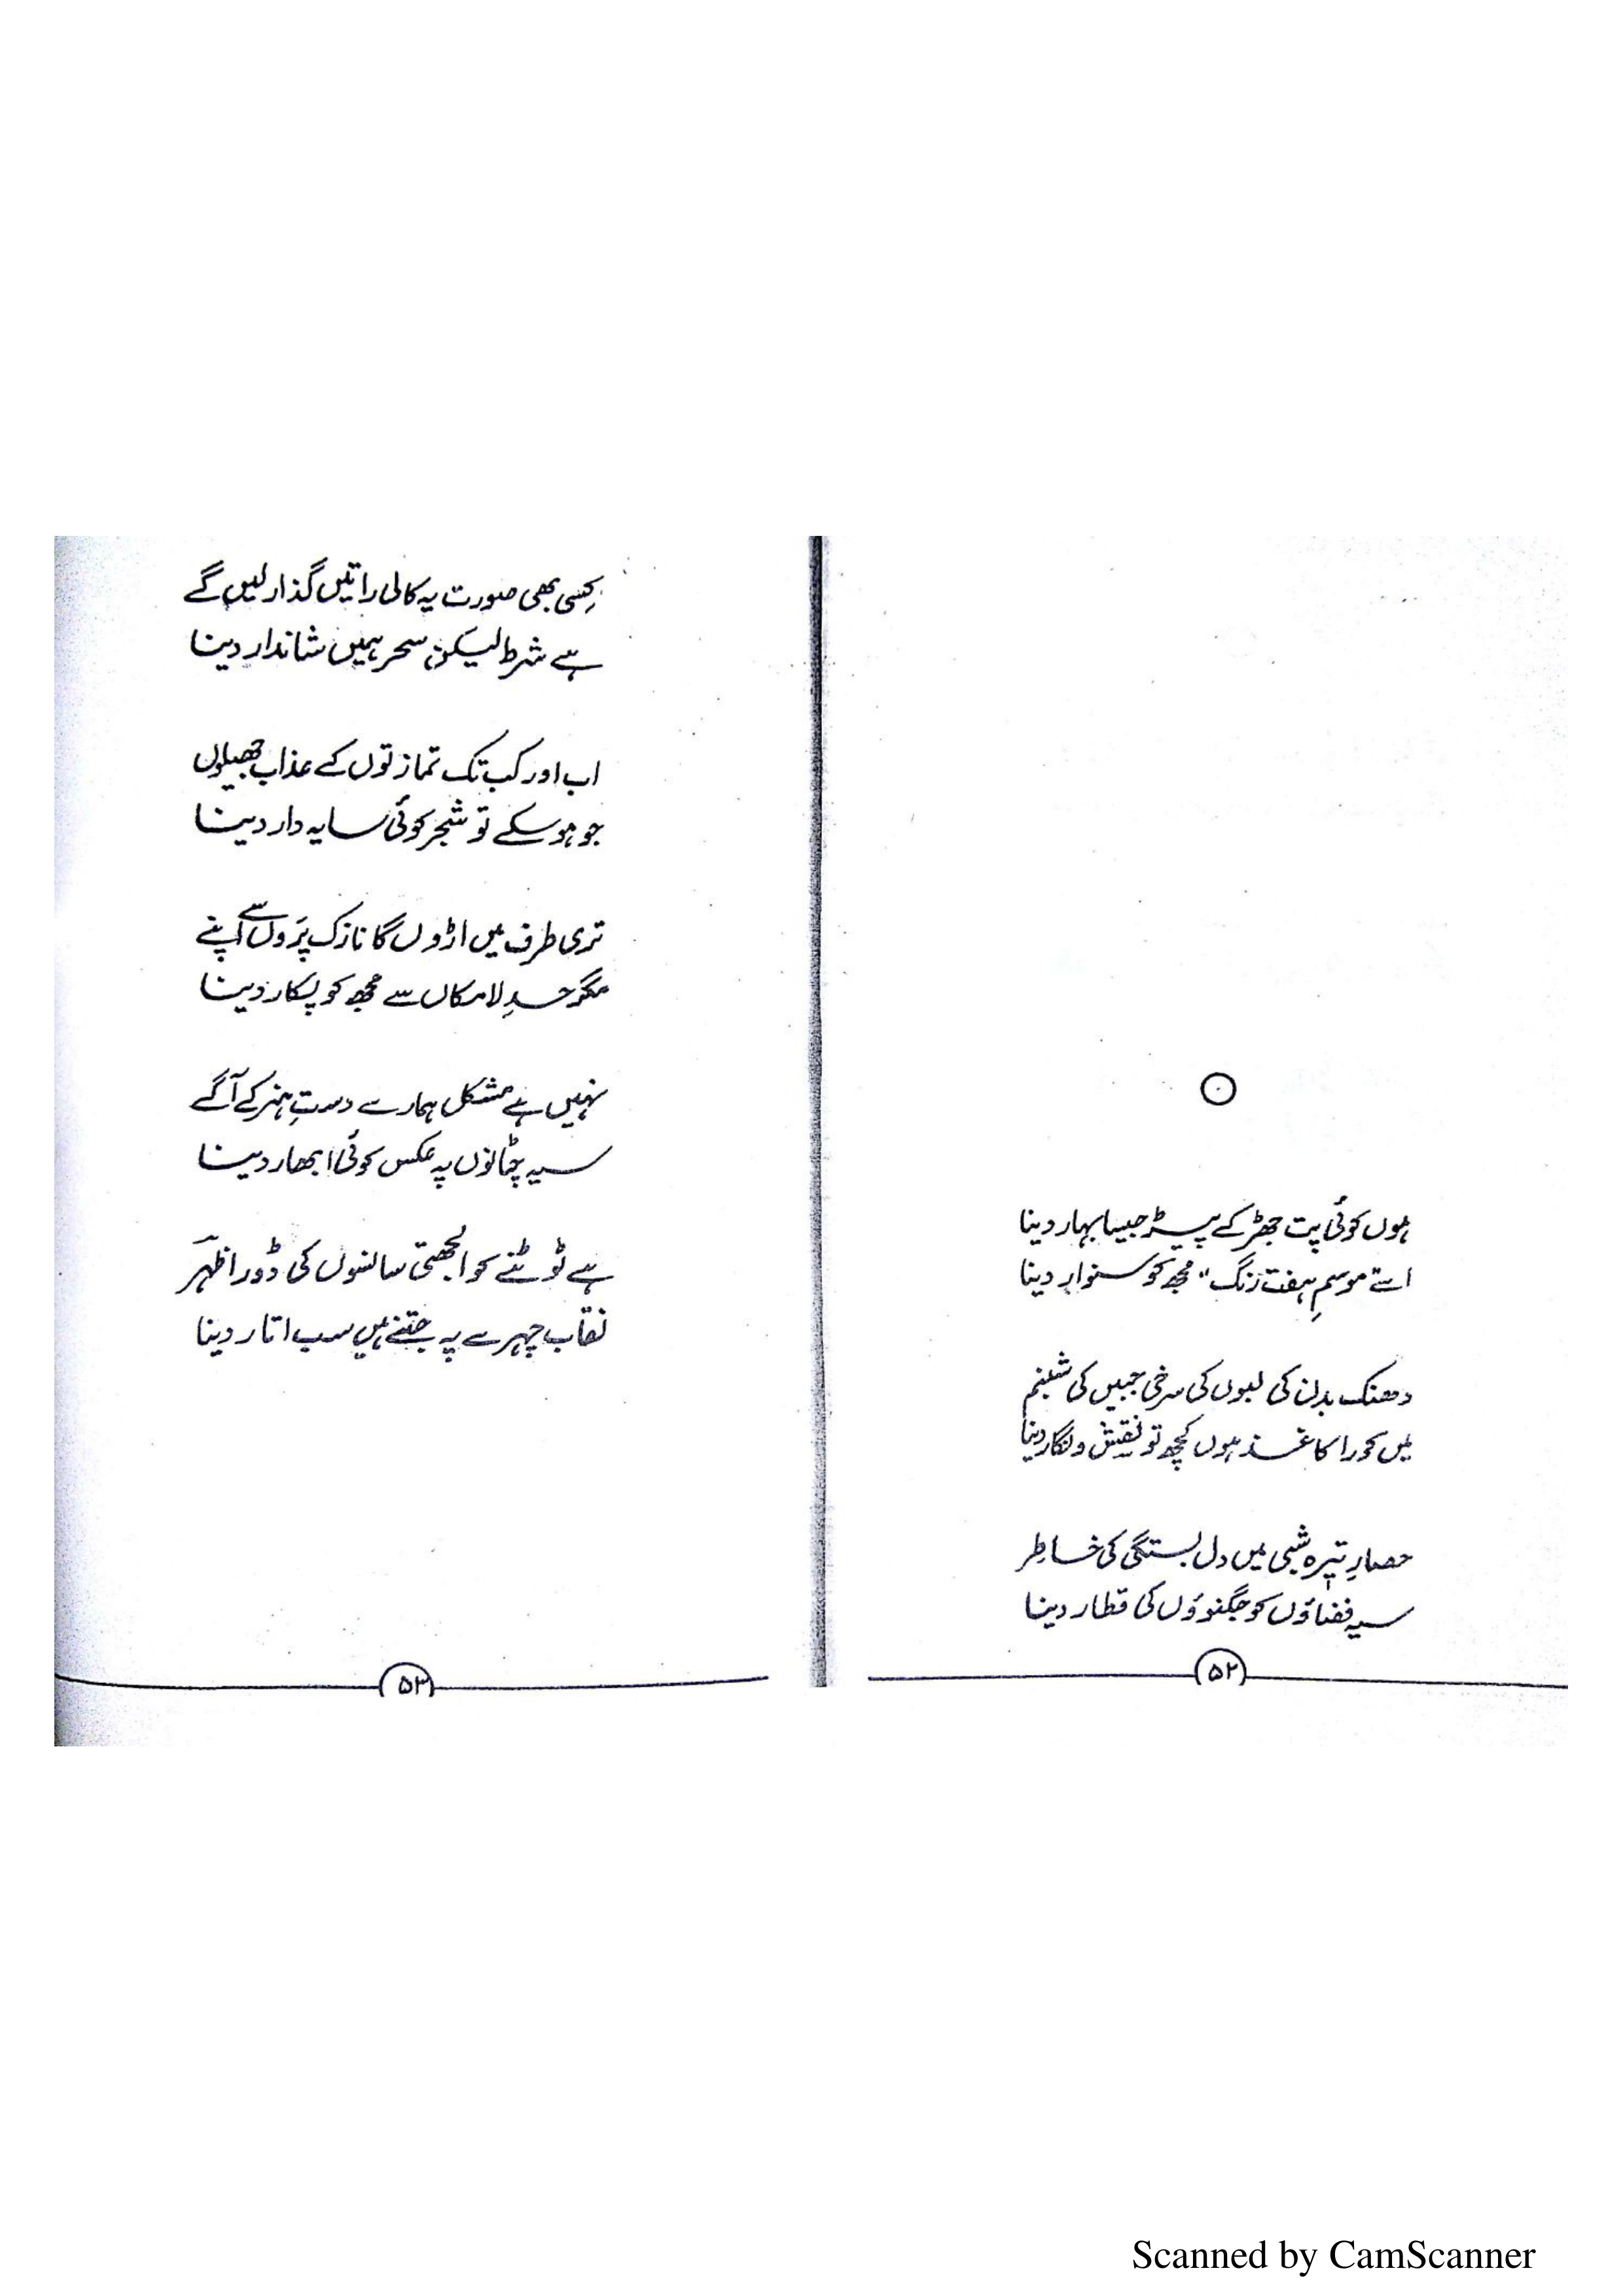 ہوں کوئی پت جھڑ کے پیڑ جیسا بہار دینا
اے "موسمِ ہفت رنگ" مجھ کو سنوار دینا
دھنک بدن کی لبوں کی سرخی جبیں کی شبنم
میں کورا کاغذ ہوں کچھ تو نقش و نگار دینا
حصارِ تیرہ شبی میں دل بستگی کی خاطر
سیہ فضاؤں کو جگنوؤں کی قطار دینا
۵۲
کسی بھی صورت یہ کالی راتیں گذار لیں گے
ہے شرط لیکن سحر ہمیں شاندار دینا
اب اور کب تک تمازتوں کے عذاب جھیلوں
جو ہو سکے تو شجر کوئی سایہ دار دینا
تری طرف میں اڑوں گا نازک پَروں سے اپنے
مگر حدِ لامکاں سے مجھ کو پکار دینا
نہیں ہے مشکل ہمارے دستِ ہنر کے آگے
سیہ چٹانوں پہ عکس کوئی ابھار دینا
ہے ٹوٹنے کو الجھتی سانسوں کی ڈور اظہرؔ
نقاب چہرے پہ جتنے ہیں سب اتار دینا
۵۳
Scanned by CamScanner